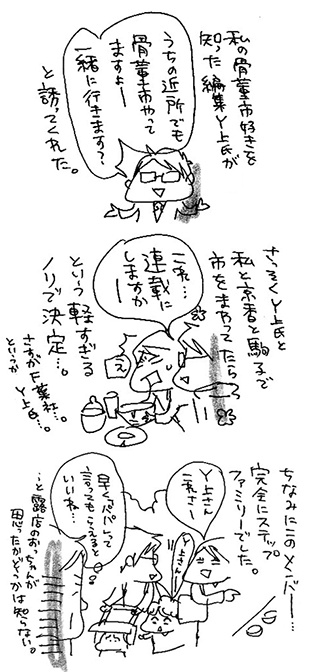 私の骨董市好きを
知った編集Y上氏が
うちの近所でも
骨董市やって
ますよー
一緒に行きます?
と誘ってくれた。
さっそくY上氏と
私と京香と駒子で
市をまわってたら
これ…
連載に
しますかー
え
という軽すぎる
ノリで決定…。
さすがF葉社…。
Y上氏…。
というか
ちなみにこのメンバー…
完全にステップ
ファミリーでした。
Y上さん
これさー
Y上さーん
早くパパって
言ってもらえると
いいね…
…と露店のおっちゃんが
思ったかどうかは知らない。